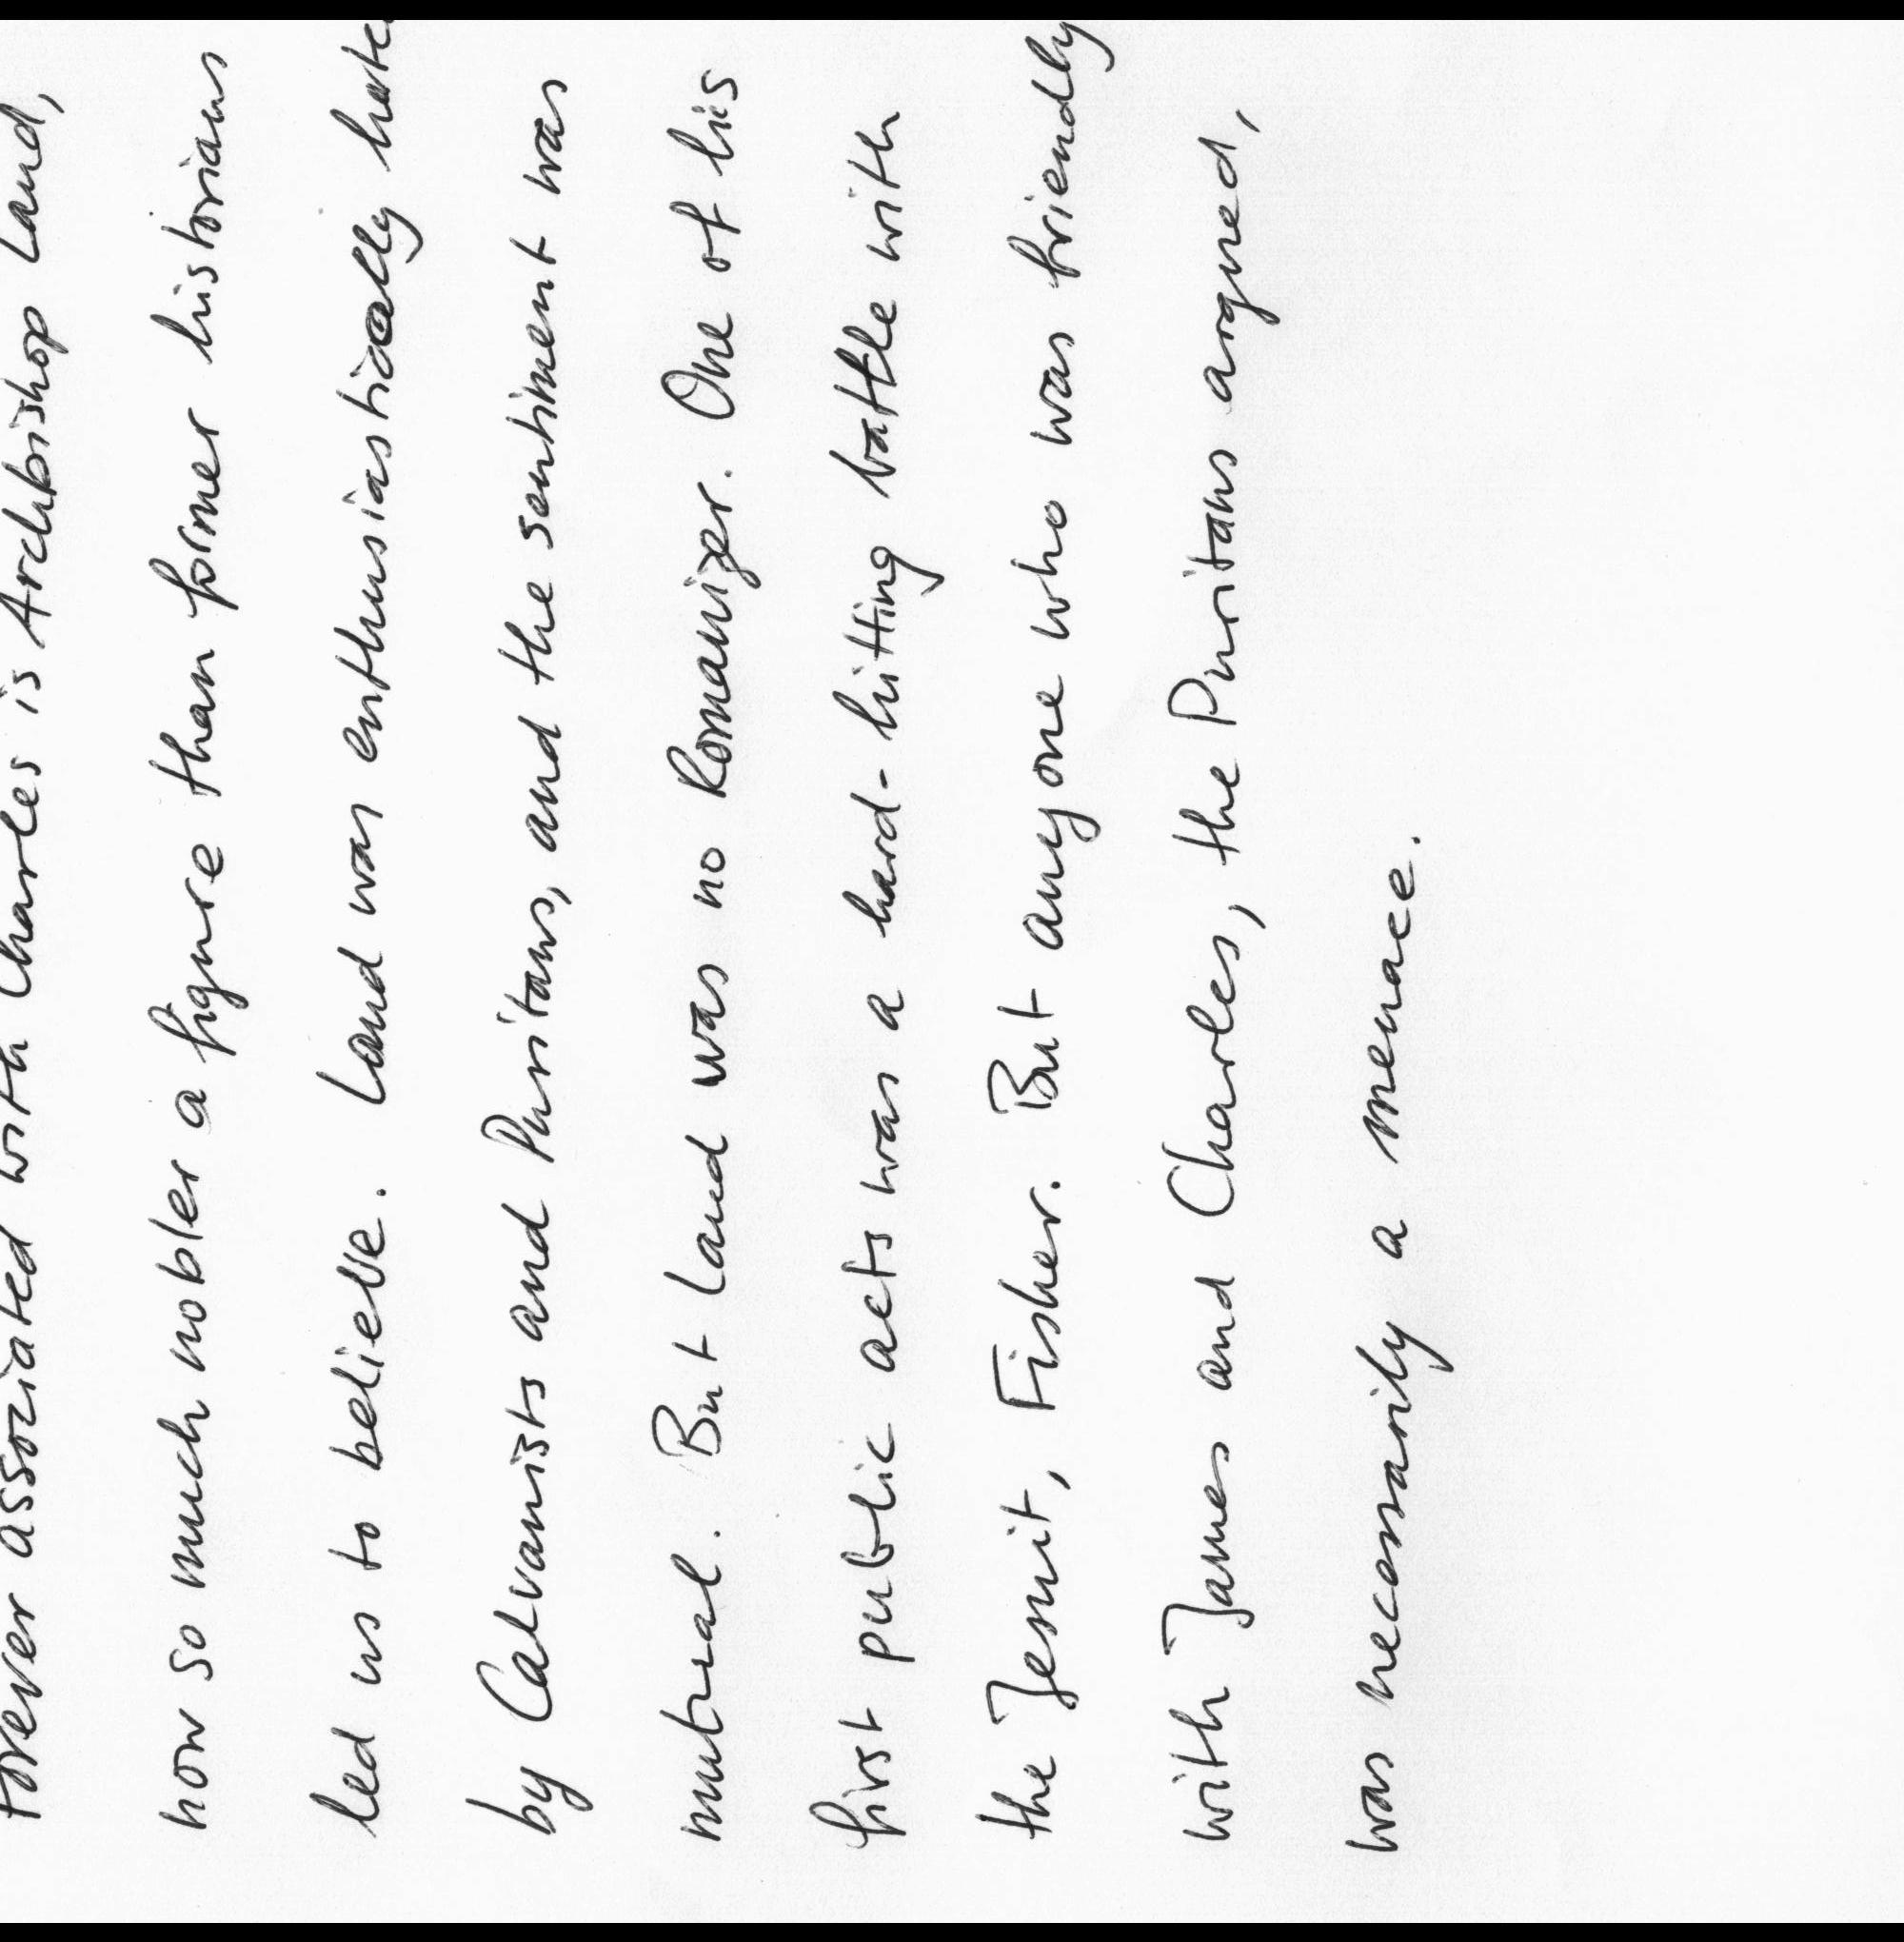 forever assoziated with Charles is Archbishop Laud,
now so much nobler a figure than former historians
led us to believe. Laud was enthusiastically hate
by Calvanists and Puritans, and the sentiment was
mutual. But Laud was no Romanizer. One of his
first public acts was a hard-hitting battle with
the Jesuit, Fisher. But anyone who was friendly
with James and Charles, the Puritans argued,
was necessarily a menace.